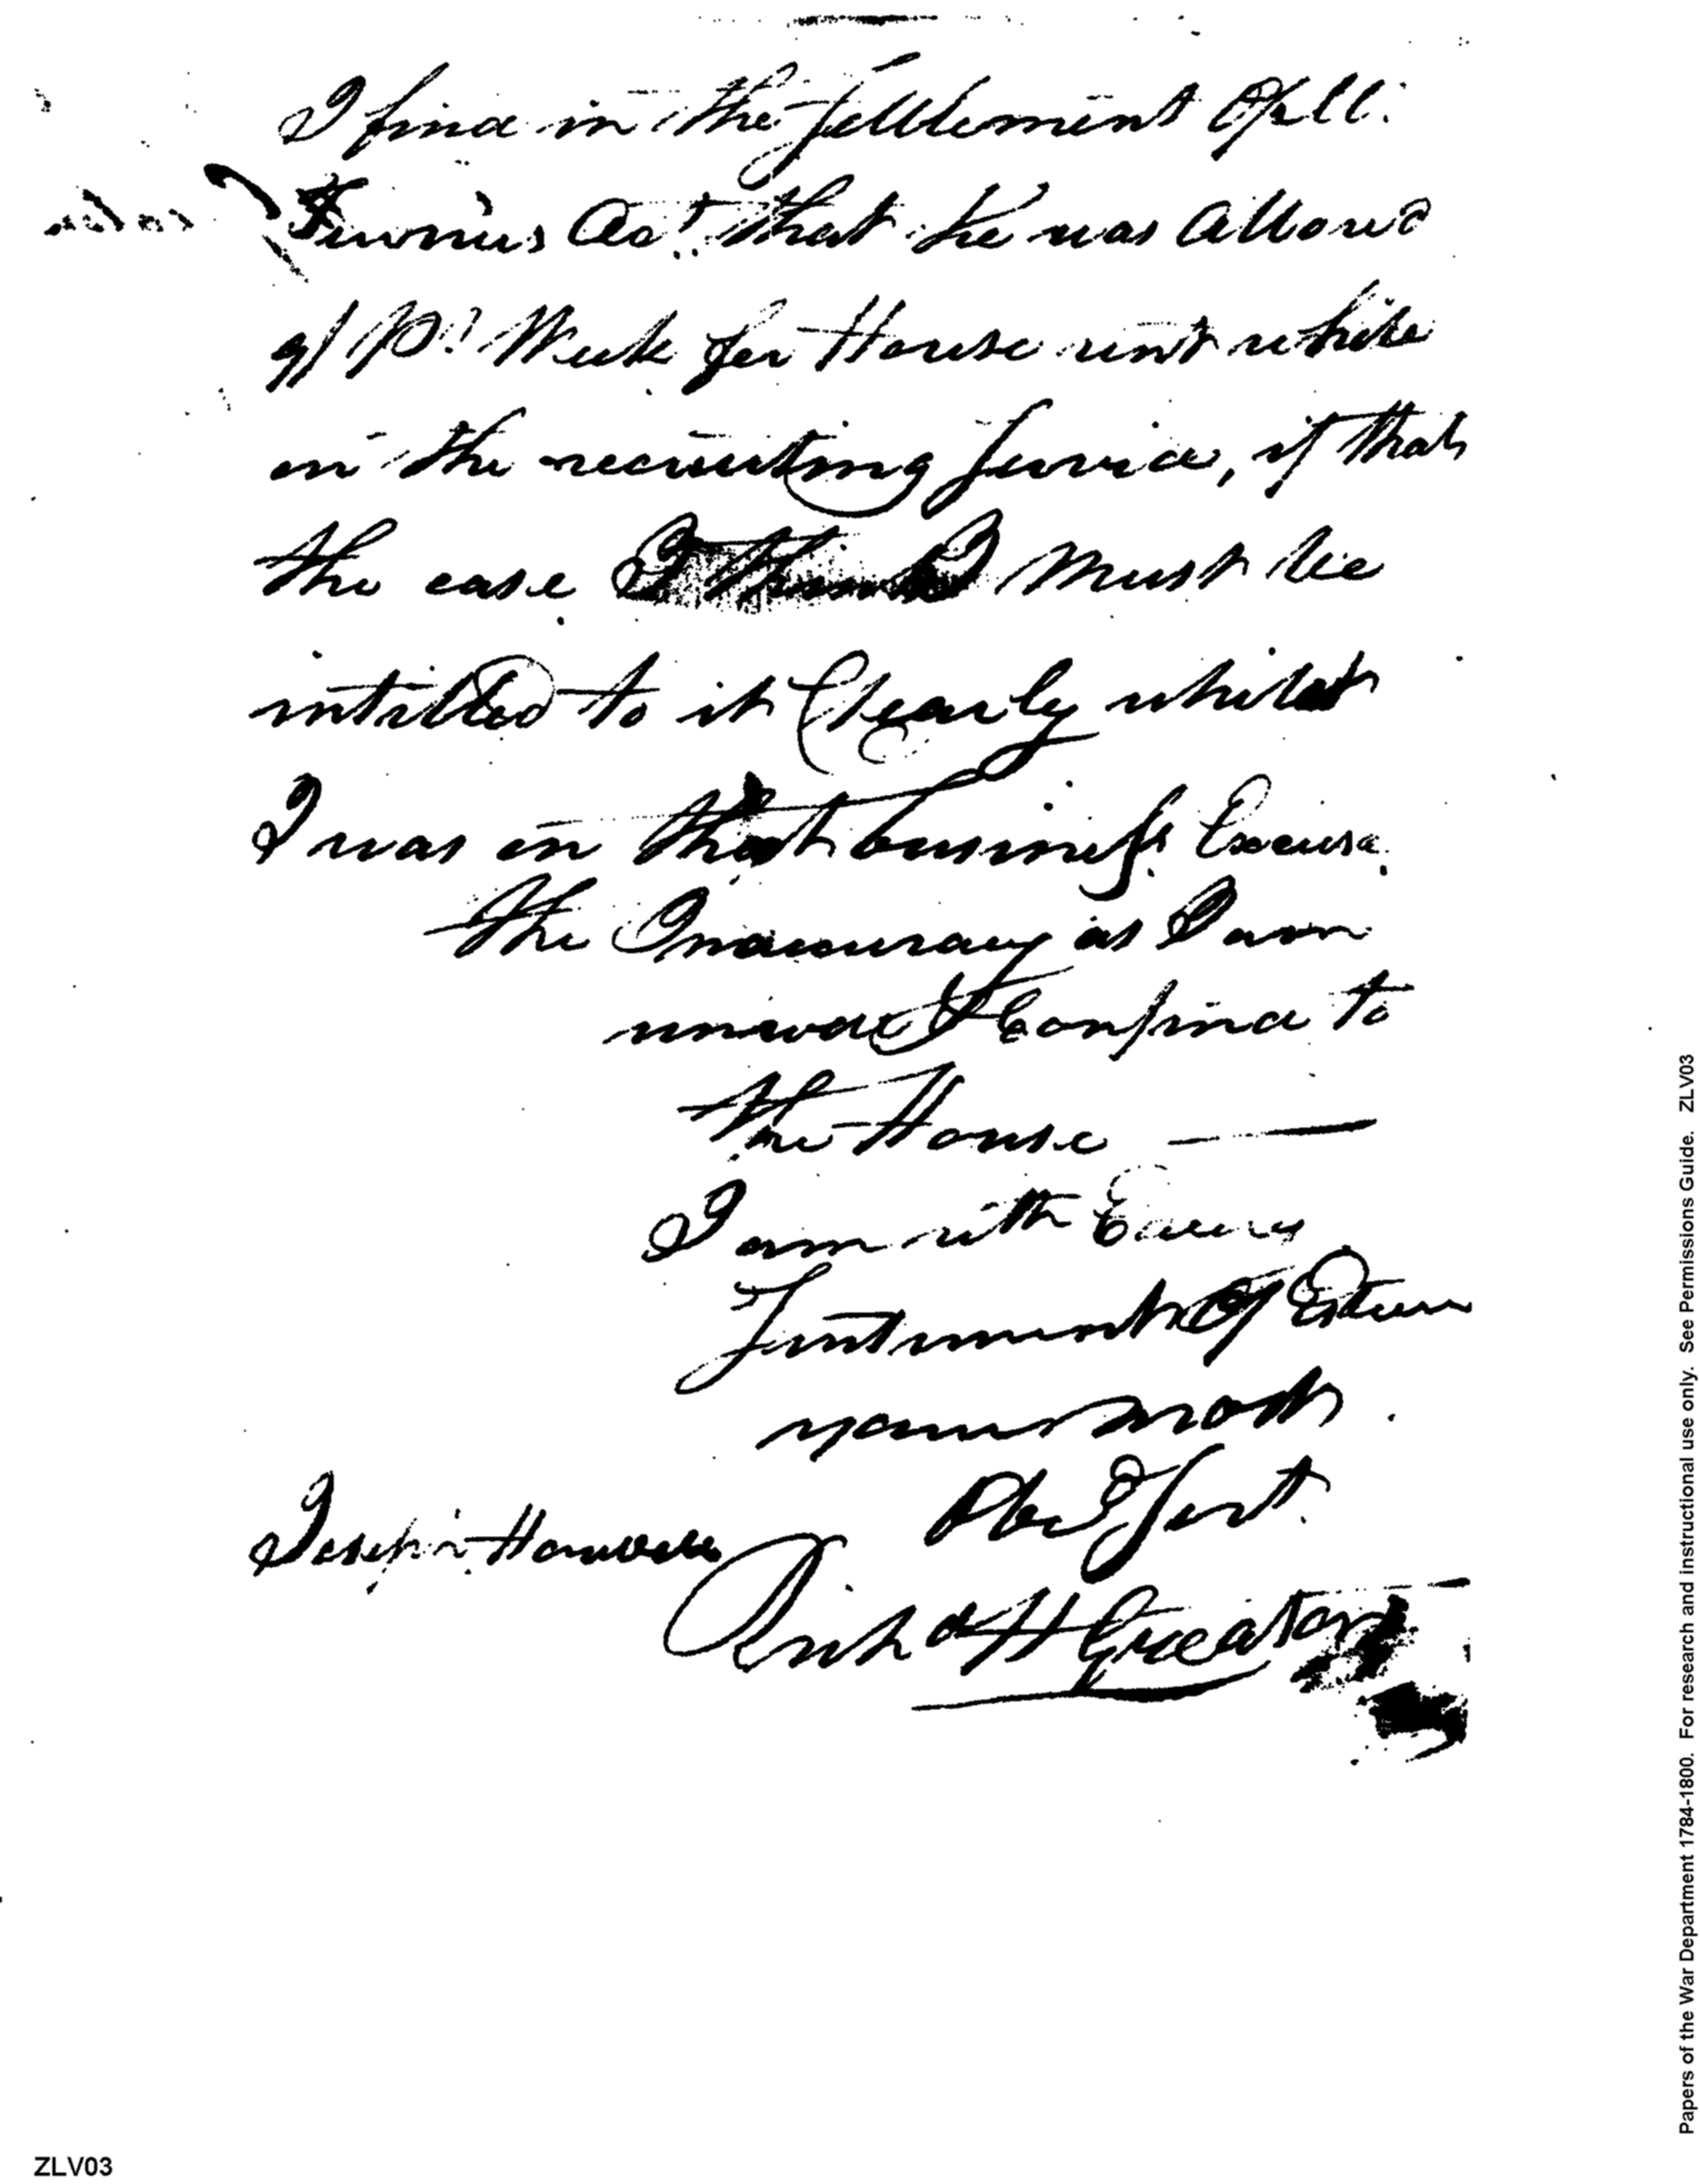 I find in the Settlement of Ll.
Furnius Act. that he was Allowd
9/ Pr. Week for House rent while
on the recruiting Service, if that
the case I think I must be
intitled to it Clearly whilst
I was on that business Excuse
the Inaccuracy as I am
unwell & Confind to
the House —
I am with Every
Sentiment of Esteem
yours most
Obed Sert.
Joseph Howell
Richd H Greaton
ZLV03
Papers of the War Department 1784-1800. For research and instructional use only. See Permissions Guide. ZLV03